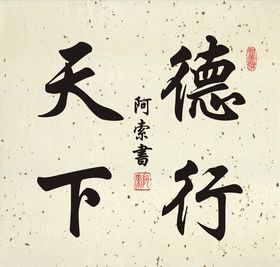 德行
天下
阿索書